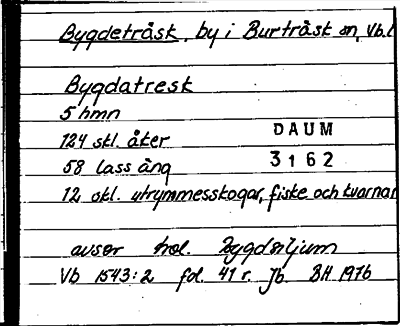 Bygdeträsk, by i Burträsk sn, Vb.l
Bygdatresk
5 hmn
124 skl. åker
DAUM
58 lass äng
3162
12 skl. utrymmesskogar, fiske och kvarnar
avser trol. Bygdsiljum
Vb 1543:2 fol. 41 r. Jb. BH 1976